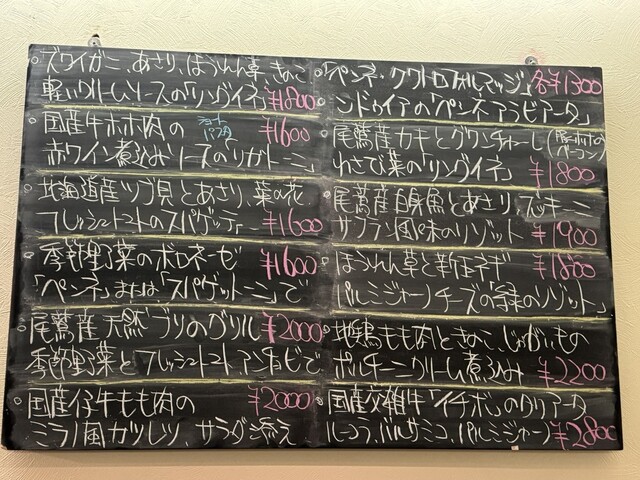 ズワイガニ、あさり、ほうれん草、きのこ
軽いクリームソースの「リングイネ」 ¥1800
国産牛ホホ肉の ショートパスタ ¥1600
赤ワイン煮込みソースの「リガトーニ」
北海道産ツブ貝とあさり、菜の花
フレッシュトマトのスパゲッティ ¥1600
季節野菜のボロネーゼ ¥1600
「ペンネ」または「スパゲットーニ」で
尾鷲産天然ブリのグリル ¥2000
季節野菜とフレッシュトマト、アンチョビで
国産仔牛もも肉の ¥2000
ミラノ風カツレツ、サラダ添え
「ペンネ・クワトロフォルマッジ」 各¥1300
ンドゥイアの「ペンネアラビアータ」
尾鷲産カキとグアンチャーレ (豚ホホ肉のベーコン)
わさび菜の「リングイネ」 ¥1800
尾鷲産白身魚とあさり、ズッキーニ
サフラン風味のリゾット ¥1900
ほうれん草と新玉ネギ ¥1800
パルミジャーノチーズの「リゾット」
地鶏もも肉ときのこ、じゃがいもの
ポルチーニクリーム煮込み ¥2200
国産交雑牛「イチボ」のタリアータ
ルーコラ、バルサミコ、パルミジャーノ ¥2800